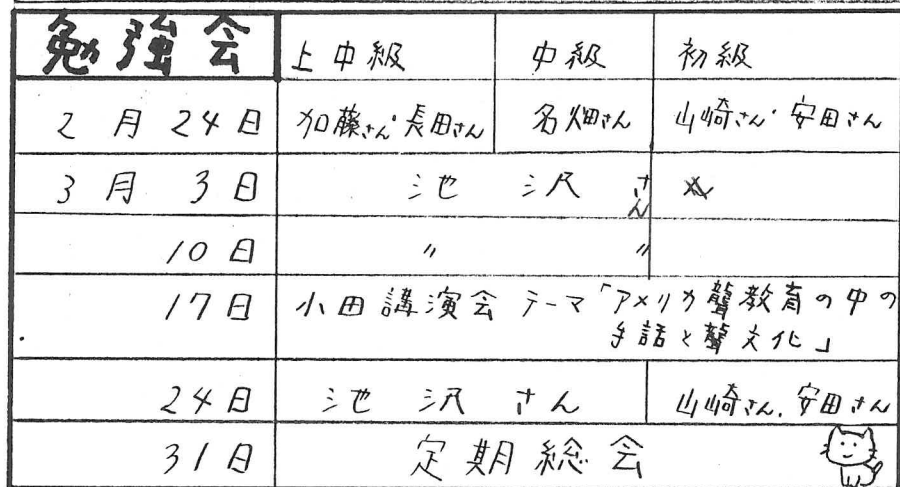 勉強会 上中級 中級 初級
2月24日 加藤さん・長田さん 名畑さん 山崎さん・安田さん
3月3日 池沢さん
10日 〃 〃
17日 小田講演会 テーマ「アメリカ聾教育の中の
手話と聾文化」
24日 池沢さん 山崎さん、安田さん
31日 定期総会